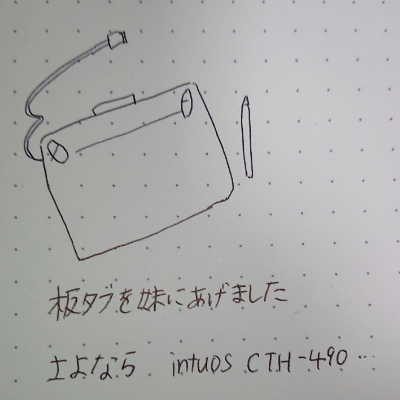 板タブを妹にあげました
さよなら intuos CTH-490…